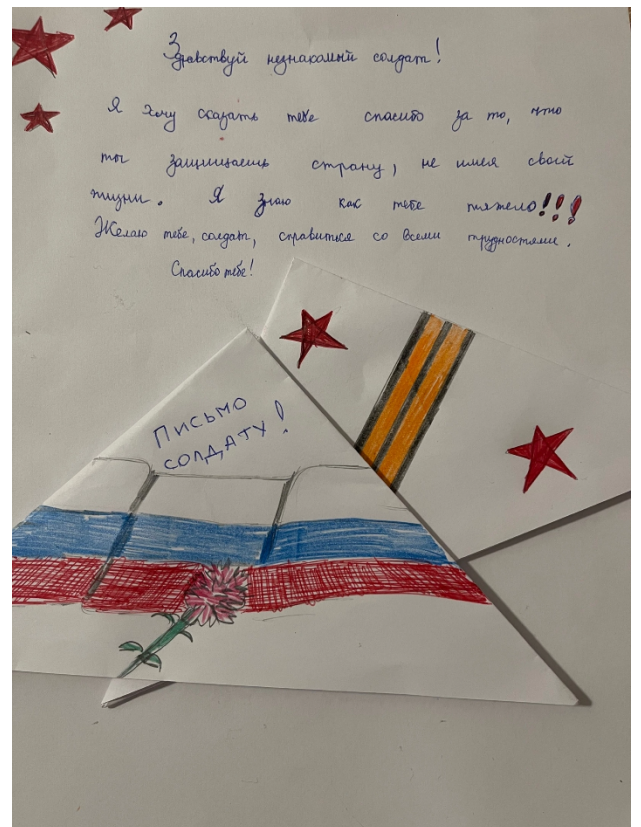 Здравствуй незнакомый солдат!
Я хочу сказать тебе спасибо за то, что
ты защищаешь страну, не имея своей
жизни. Я знаю как тебе тяжело!!!
Желаю тебе, солдат, справиться со всеми трудностями.
Спасибо тебе!
ПИСЬМО
СОЛДАТУ!